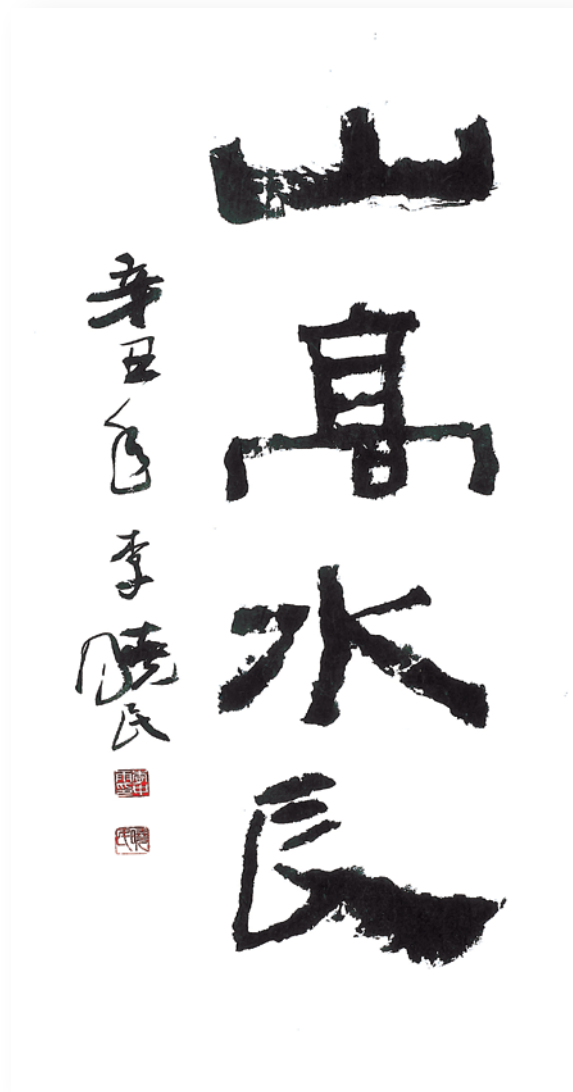 山高水長
辛丑年李曉民